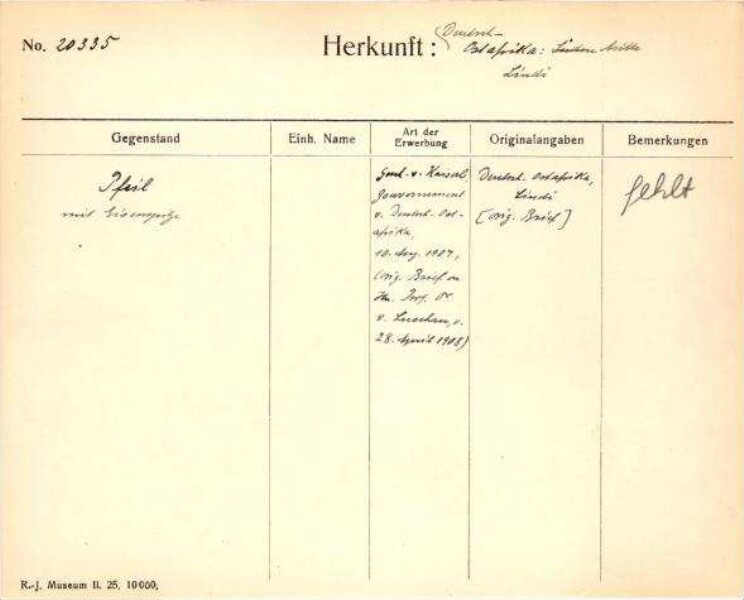 No. 20335
Herkunft : (Deutsch-
Ostafrika: Süden Mitte
Lindi
Gegenstand
Einh. Name
Art der
Erwerbung
Originalangaben
Bemerkungen
Pfeil
mit Eisenspitze
v. Kaiserl.
Gouvernement
v. Deutsch-Ost-
afrika,
10. Aug. 1907,
(orig. Brief an
Hn. Prof. Dr
v. Luschan, v.
28. April 1908)
Deutsch. Ostafrika,
Lindi
[orig. Brief]
fehlt
R.-J. Museum II. 25. 10000.